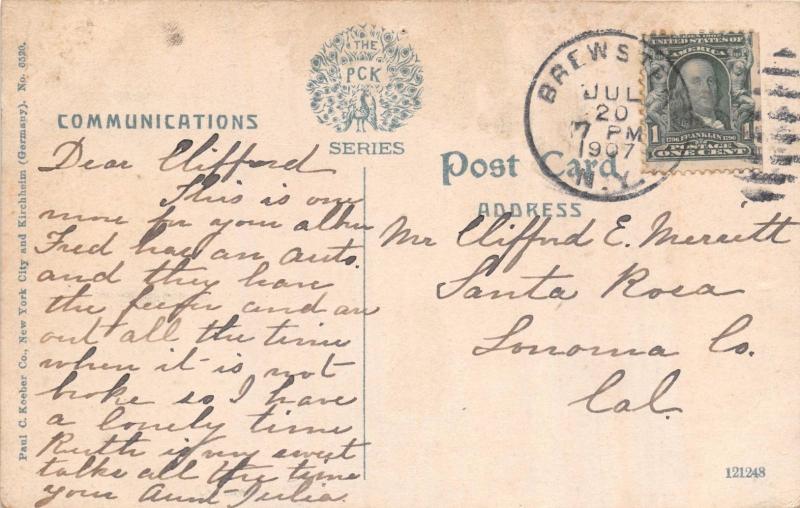 Paul C. Koeber Co., New York City and Kirchheim (Germany). No. 6520.
THE
PCK
SERIES
COMMUNICATIONS
Dear Clifford
This is one
more for your album
Fred has an auto.
and they have
the fever and are
out all the time
when it is not
broke so I have
a lonely time
Ruth is my sweet
talks all the time
your Aunt Julia.
BREWSTER
JUL
20
7 PM
1907
N.Y.
UNITED STATES OF
AMERICA
1 1790 FRANKLIN 1790 1
POSTAGE
ONE CENT
Post Card
ADDRESS
Mr Clifford E. Merritt
Santa Rosa
Sonoma Co.
Cal.
121248